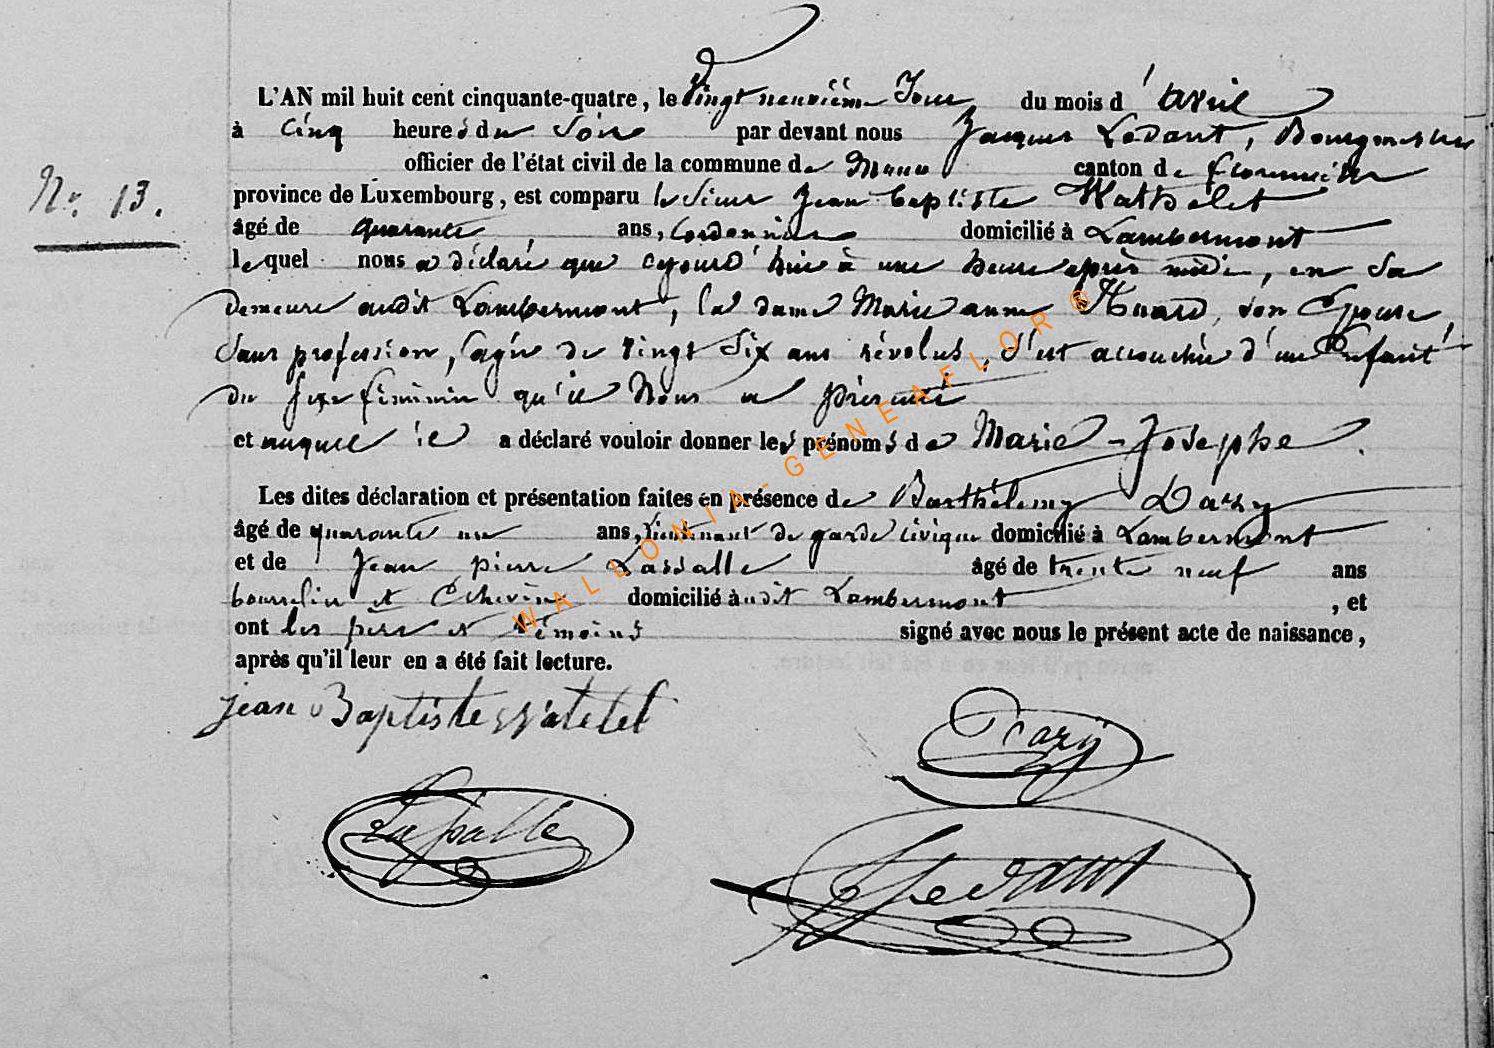 L'AN mil huit cent cinquante-quatre, le Vingt neuvième Jour du mois d'avril
à cinq heures du soir par devant nous Jacques Ledant, Bourgmestre
officier de l'état civil de la commune de Muno canton de florenville
Nr. 13.
province de Luxembourg, est comparu le Sieur Jean baptiste Wathelet
âgé de quarante ans, cordonnier domicilié à Lambermont
lequel nous a déclaré que cejourd'hui à une heure après midi, en sa
demeure audit Lambermont, la dame Marie anne Huard, son Epouse,
sans profession, agée de vingt six ans révolus, s'est accouchée d'un Enfant
du sexe féminin qu'il Nous a présenté
et auquel il a déclaré vouloir donner les prénoms de Marie-Josephe.
Les dites déclaration et présentation faites en présence de Barthélemy Dazy
âgé de quarante un ans, lieutenant de garde civique domicilié à Lambermont
et de Jean pierre Lassalle âgé de trente neuf ans
bourrelier et Echevin domicilié audit Lambermont, et
ont les père et témoins signé avec nous le présent acte de naissance,
après qu'il leur en a été fait lecture.
jean Baptiste Watelet
Dazÿ
Lassalle
JLedant
WALLONIA-GENEAFLOR®